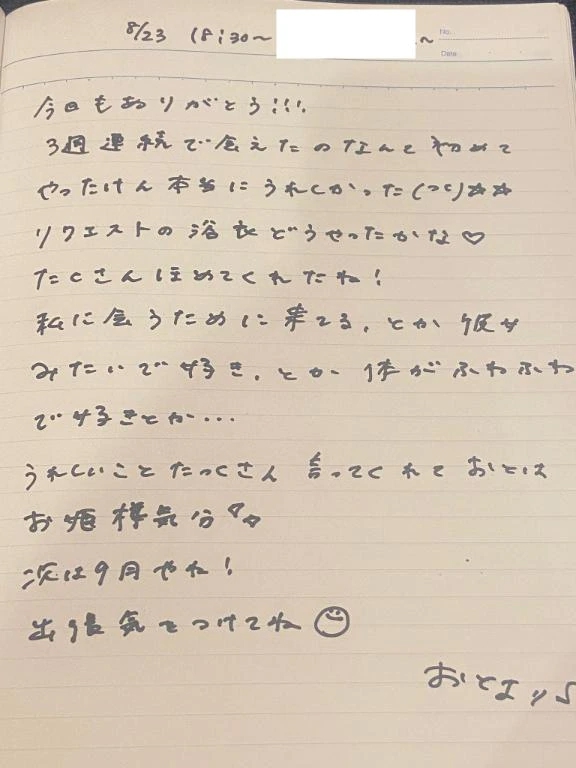 8/23 18:30〜 〜
No.
Date
今日もありがとう!!!
3週連続で会えたのなんて初めて
やったけん本当にうれしかった(つC)☆☆
リクエストの浴衣どうやったかな♡
たくさんほめてくれたね!
私に会うために来てる、とか彼女
みたいで好き、とか体がふわふわ
で好きとか・・・
うれしいことたっくさん言ってくれておとは
お姫様気分
次は9月やね!
出張気をつけてね
おとより